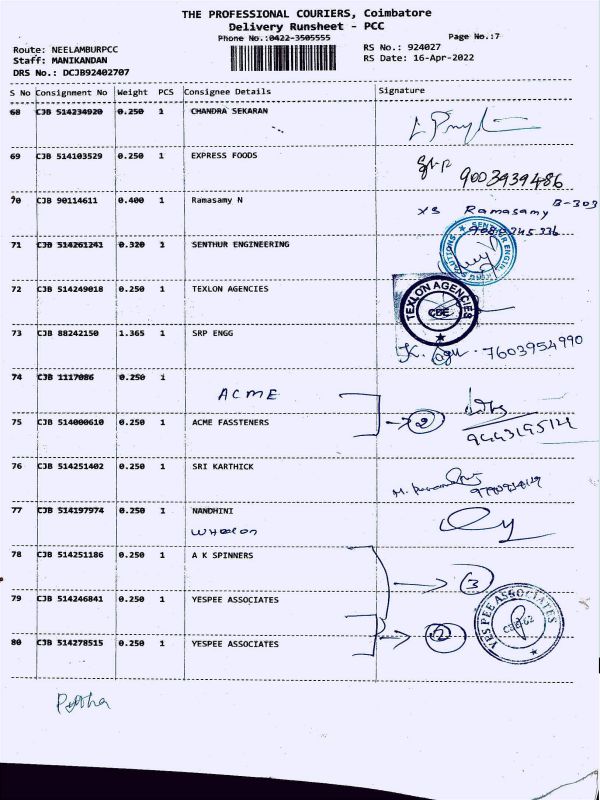 THE PROFESSIONAL COURIERS, Coimbatore
Delivery Runsheet - PCC
Phone No.:0422-3505555
Page No.:7
Route: NEELAMBURPCC
RS No.: 924027
Staff: MANIKANDAN
RS Date: 16-Apr-2022
DRS No.: DCJB92402707
S No Consignment No Weight PCS Consignee Details Signature
68 CJB 514234920 0.250 1 CHANDRA SEKARAN
69 CJB 514103529 0.250 1 EXPRESS FOODS
9003939486
70 CJB 90114611 0.400 1 Ramasamy N
Ramasamy B-303
71 CJB 514261241 0.320 1 SENTHUR ENGINEERING
72 CJB 514249018 0.250 1 TEXLON AGENCIES
TEXLON AGENCIES
CBE
73 CJB 88242150 1.365 1 SRP ENGG
7603954990
74 CJB 1117086 0.250 1
ACME
75 CJB 514000610 0.250 1 ACME FASSTENERS
2
76 CJB 514251402 0.250 1 SRI KARTHICK
77 CJB 514197974 0.250 1 NANDHINI
78 CJB 514251186 0.250 1 A K SPINNERS
3
79 CJB 514246841 0.250 1 YESPEE ASSOCIATES
YES PEE ASSOCIATES
80 CJB 514278515 0.250 1 YESPEE ASSOCIATES
2